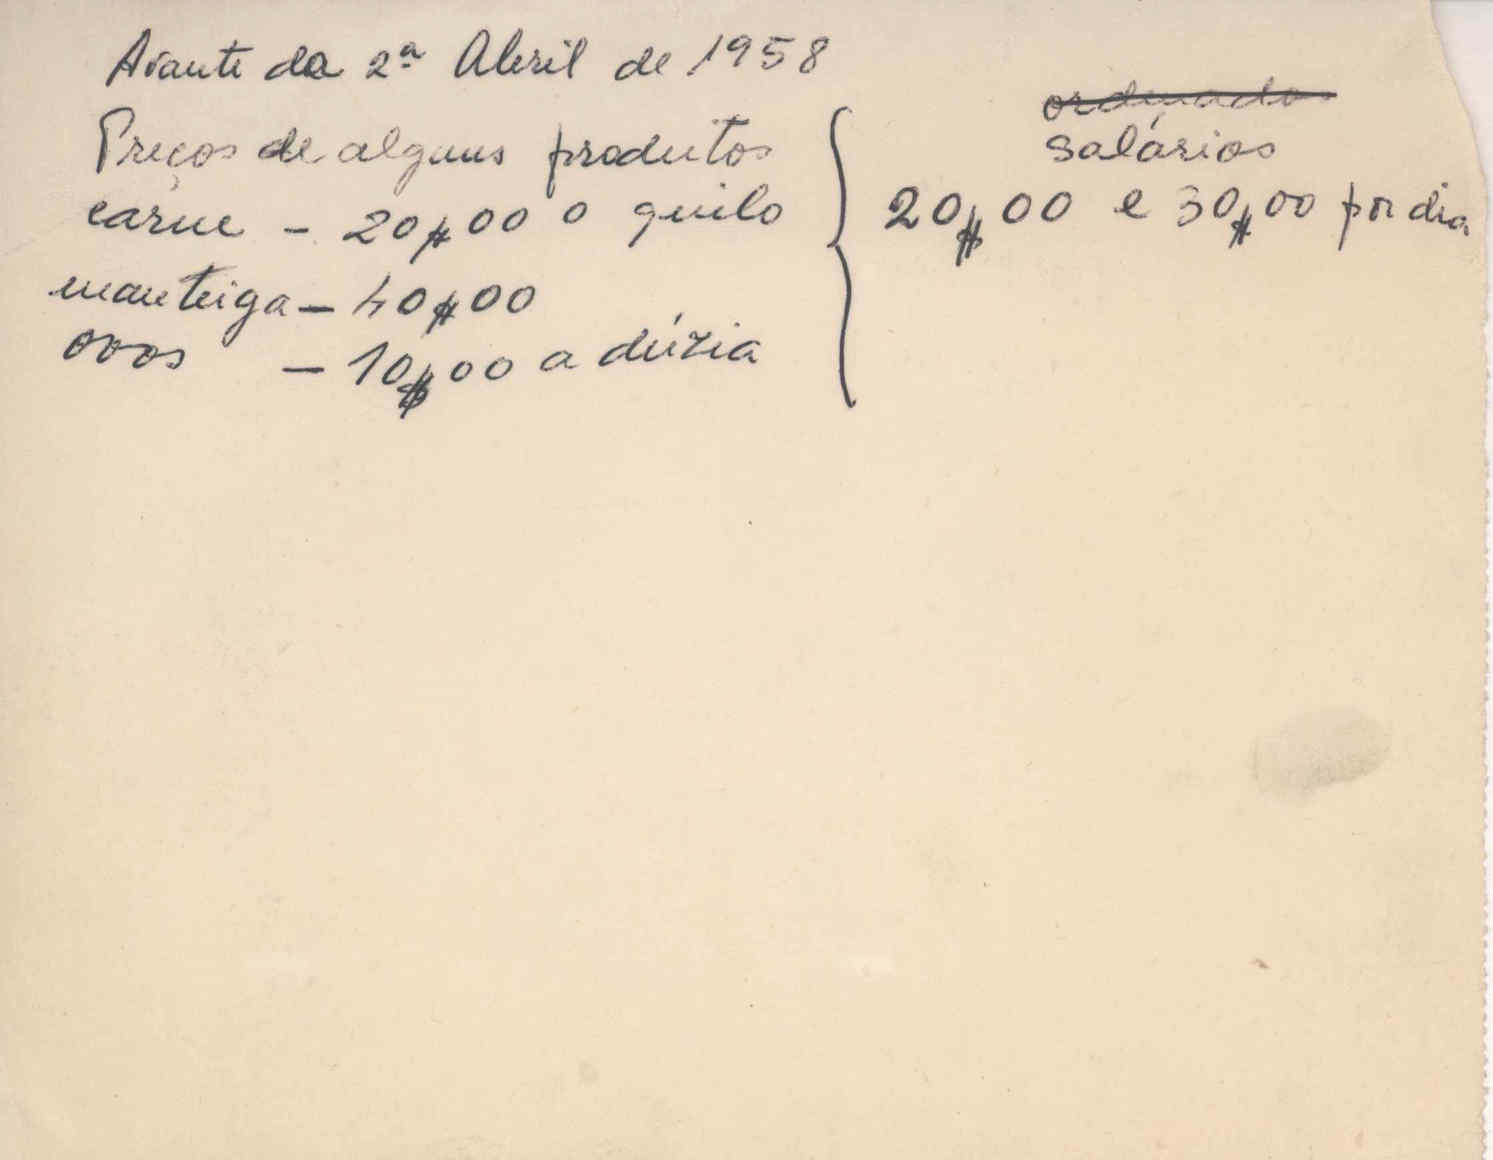 Avante da 2ª Abril de 1958
Preços de alguns produtos
carne - 20$00 o quilo
manteiga - 40$00
ovos - 10$00 a dúzia
ordenados
salários
20$00 e 30$00 por dia